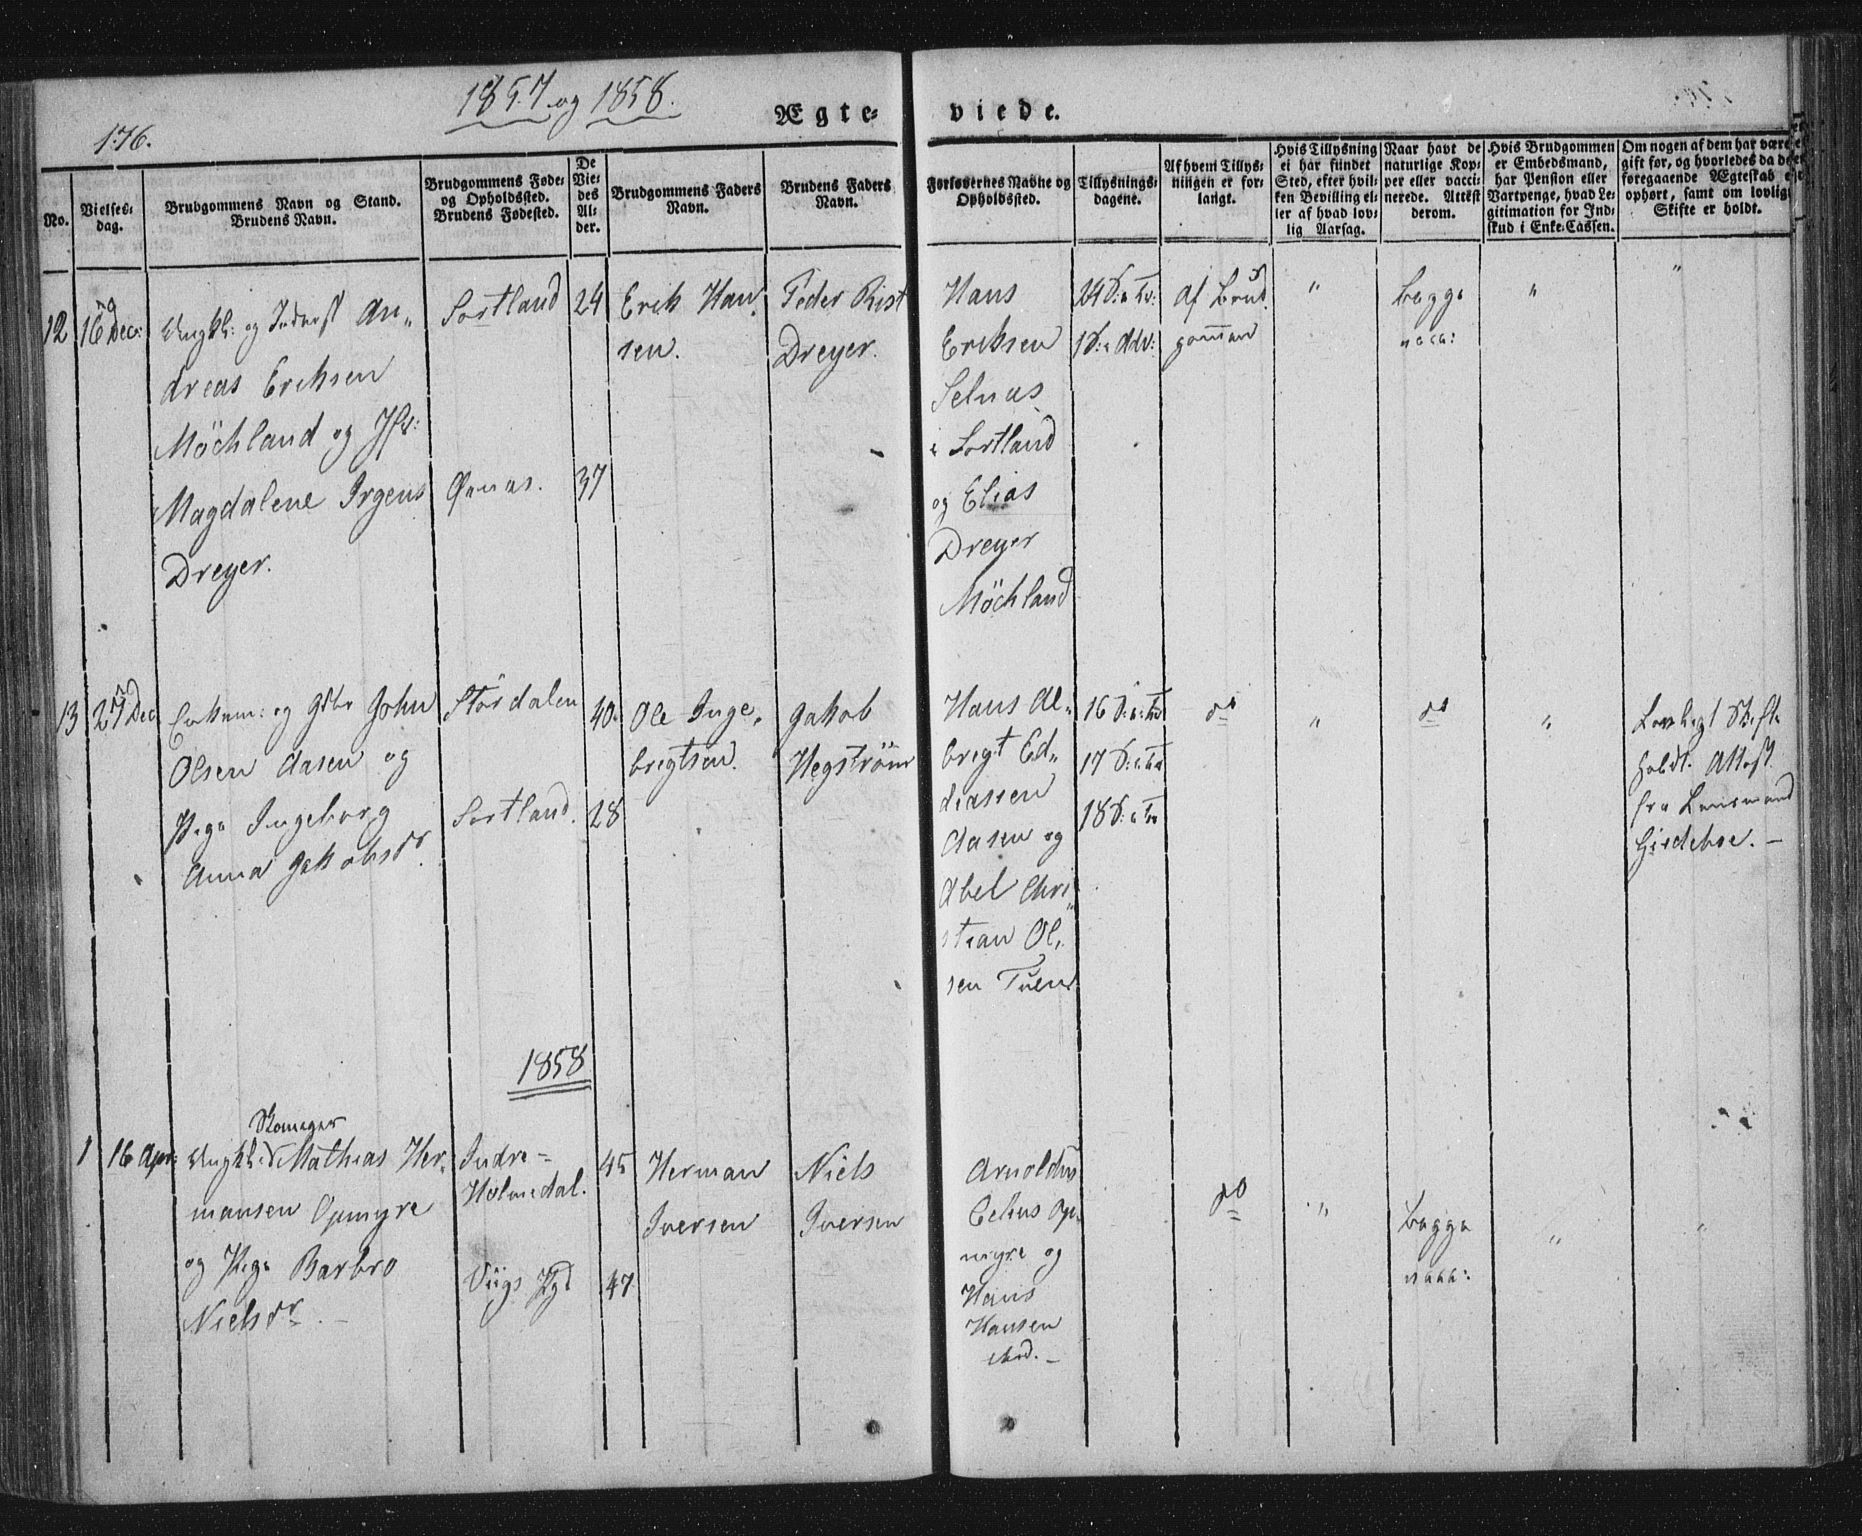 176.
1857 og 1858.
Ægte- viede.
No.
Vielses-
dag.
Brudgommens Navn og Stand.
Brudens Navn.
Brudgommens Føde-
og Opholdssted.
Brudens Fødested.
De
Vie-
des
Al-
der.
Brudgommens Faders
Navn.
Brudens Faders
Navn.
Forlovernes Navne og
Opholdssted.
Tillysnings-
dagene.
Af hvem Tillys-
ningen er for-
langt.
Hvis Tillysning
ei har fundet
Sted, efter hvil-
ken Bevilling el-
ler af hvad lov-
lig Aarsag.
Naar havt de
naturlige Kop-
per eller vacci-
nerede. Attest
derom.
Hvis Brudgommen
er Embedsmand,
har Pension eller
Vartpenge, hvad Le-
gitimation for Ind-
skud i Enke-Cassen.
Om nogen af dem har være
gift før, og hvorledes da de
foregaaende Ægteskab e
ophørt, samt om lovlig
Skifte er holdt.
12
16 Dec:
Ungkl: og Inderst An-
dreas Eriksen
Möchland og Jfr:
Magdalene Irgens
Dreyer.
Sortland
24
37
Erik Han-
sen.
Peder Rist
Dreyer.
Hans
Eriksen
Selnæs
i Sortland
og Elias
Dreyer
Möchland
af Brud
gommen
"
begge
vacc:
"
"
13
27 Dec
Enkem: og Gbr John
Olsen Aasen og
Pige Ingeborg
Anna Jakobsdr.
Stördalen
Sortland.
40.
28
Ole Inge-
brigtsen.
Jakob
Hegström
Hans Al-
brigt Ed-
diassen
Aasen og
Abel Chri
stian Ol-
sen Tuen
do
"
do
"
Lovligt Skifte
holdt. Attest
fra Lensmand
1858
1
16 Apr:
Skomager
Ungkl: Mathias Her-
mansen Opmyre
og Pige Barbro
Nielsdr. -
Indre-
Holmedal.
Viigs Pgd
45
47
Herman
Iversen
Niels
Iversen
Arnoldus
Celius Op-
myre og
Hans
Hansen
ibid. -
do
"
begge
vacc:
"
"